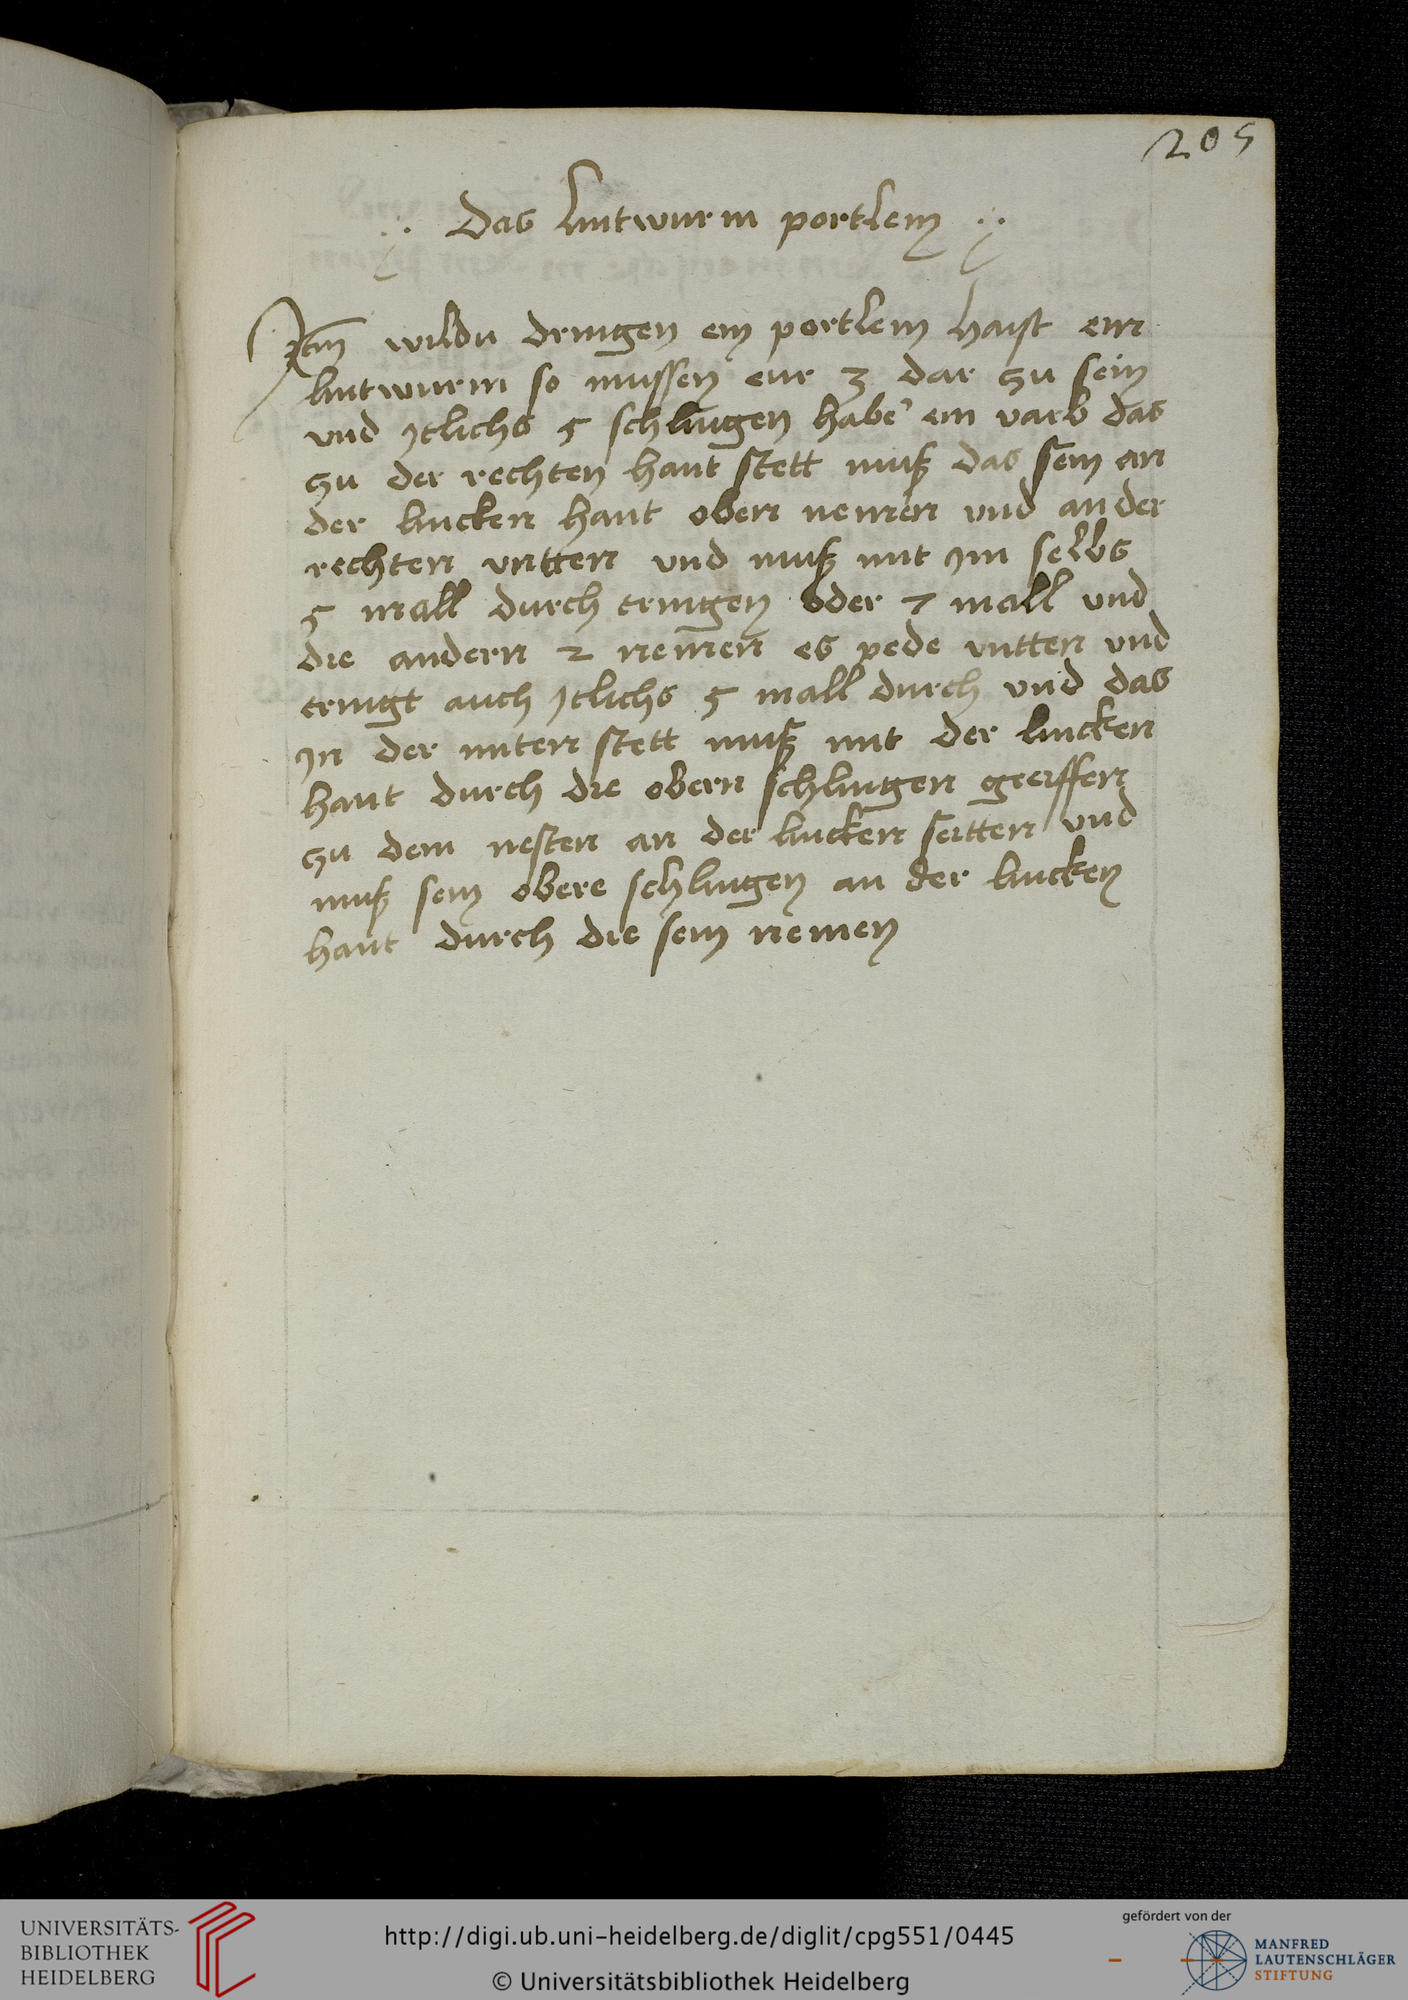 205
Das lintwurm portlein
Jtm wildu dringen ein portlein haist ein
lintwurm so mussen eur 3 dar zu sein
vnd ytlichs 5 schlingen habē ein varb das
zu der rechten hant stett muß das sein an
der lincken hant oben nemen vnd an der
rechten vntten vnd muß mit ym selbs
5 mall durch tringen oder 7 mall vnd
die andern 2 nemen es pede vntten vnd
tringt auch ytlichs 5 mall durch vnd das
yn der miten stett muß mit der lincken
hant durch die obern schlingen greiffen
zu dem nesten an der lincken seitten vnd
muß sein obere schlingen an der lincken
hant durch die sein nemen
UNIVERSITÄTS-
BIBLIOTHEK
HEIDELBERG
http://digi.ub.uni-heidelberg.de/diglit/cpg551/0445
© Universitätsbibliothek Heidelberg
gefördert von der
MANFRED
LAUTENSCHLÄGER
STIFTUNG